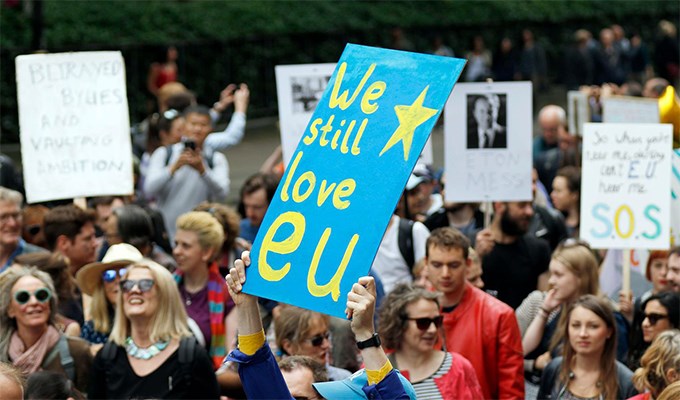 BETRAYED
BY LIES
AND
VAULTING
AMBITION
We
still
love
eu
ETON
MESS
SO WHEN YOU'RE
NEAR ME darling
CAN'T EU
HEAR ME
S.O.S